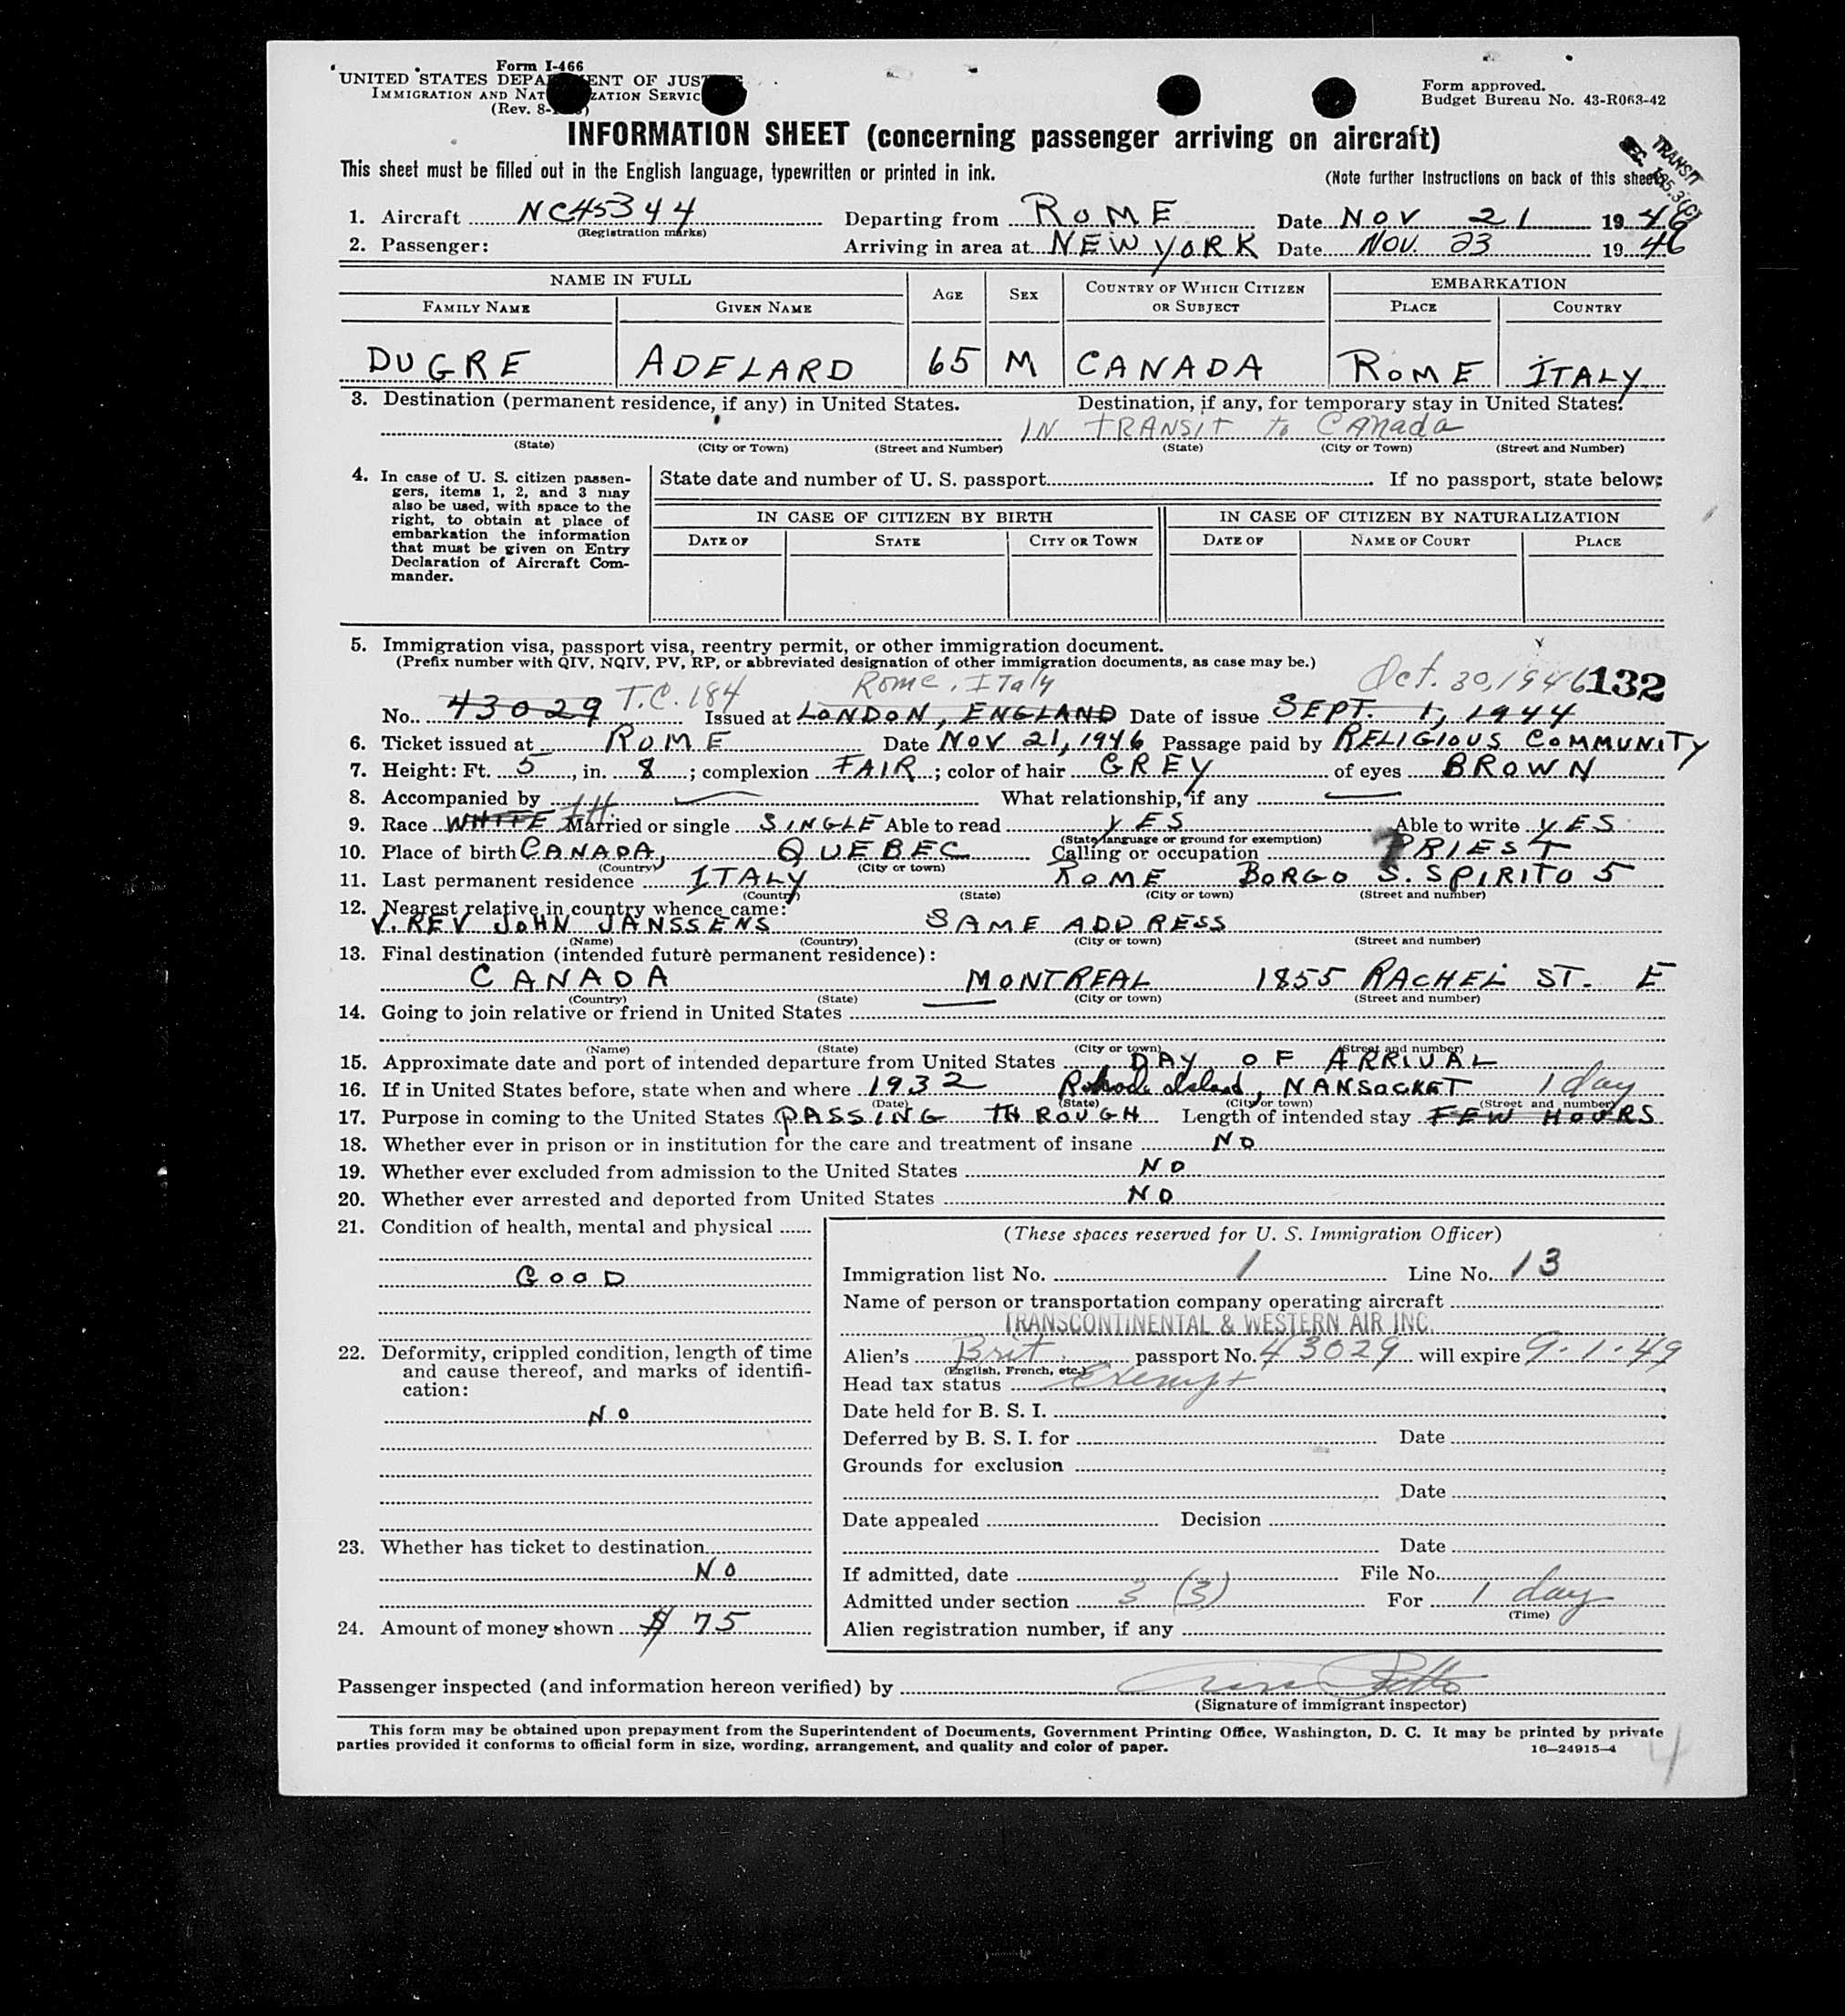 Form I-466
UNITED STATES DEPARTMENT OF JUSTICE
IMMIGRATION AND NATURALIZATION SERVICE
(Rev. 8-
Form approved.
Budget Bureau No. 43-R063-42
INFORMATION SHEET (concerning passenger arriving on aircraft)
TRANSIT
SEC. 165.3(C)
This sheet must be filled out in the English language, typewritten or printed in ink.
(Note further instructions on back of this sheet)
1. Aircraft NC45344 Departing from ROME Date NOV 21 1946
(Registration marks)
2. Passenger: Arriving in area at NEW YORK Date NOV. 23 1946
NAME IN FULL AGE SEX COUNTRY OF WHICH CITIZEN OR SUBJECT EMBARKATION
FAMILY NAME GIVEN NAME PLACE COUNTRY
DUGRE ADELARD 65 M CANADA ROME ITALY
3. Destination (permanent residence, if any) in United States. Destination, if any, for temporary stay in United States.
IN TRANSIT to CANada
(State) (City or Town) (Street and Number) (State) (City or Town) (Street and Number)
4. In case of U. S. citizen passen-
gers, items 1, 2, and 3 may
also be used, with space to the
right, to obtain at place of
embarkation the information
that must be given on Entry
Declaration of Aircraft Com-
mander.
State date and number of U. S. passport If no passport, state below:
IN CASE OF CITIZEN BY BIRTH IN CASE OF CITIZEN BY NATURALIZATION
DATE OF STATE CITY OR TOWN DATE OF NAME OF COURT PLACE
5. Immigration visa, passport visa, reentry permit, or other immigration document.
(Prefix number with QIV, NQIV, PV, RP, or abbreviated designation of other immigration documents, as case may be.)
Rome, ITaly Oct. 30, 1946 132
No. 43029 T.C. 184 Issued at LONDON, ENGLAND Date of issue SEPT. 1, 1944
6. Ticket issued at ROME Date NOV 21, 1946 Passage paid by RELIGIOUS COMMUNITY
7. Height: Ft. 5, in. 8; complexion FAIR; color of hair GREY of eyes BROWN
8. Accompanied by What relationship, if any
9. Race WHITE Married or single SINGLE Able to read YES Able to write YES
(State language or ground for exemption)
10. Place of birth CANADA, QUEBEC Calling or occupation PRIEST
(Country) (City or town)
11. Last permanent residence ITALY ROME BORGO S. SPIRITO 5
(Country) (State) (City or town) (Street and number)
12. Nearest relative in country whence came:
V. REV JOHN JANSSENS SAME ADDRESS
(Name) (Country) (City or town) (Street and number)
13. Final destination (intended future permanent residence):
CANADA MONTREAL 1855 RACHEL ST. E
(Country) (State) (City or town) (Street and number)
14. Going to join relative or friend in United States
(Name) (State) (City or town) (Street and number)
15. Approximate date and port of intended departure from United States DAY OF ARRIVAL
16. If in United States before, state when and where 1932 Rhode Island, NANSOCKET 1 day
(Date) (State) (City or town) (Street and number)
17. Purpose in coming to the United States PASSING THROUGH Length of intended stay FEW HOURS
18. Whether ever in prison or in institution for the care and treatment of insane NO
19. Whether ever excluded from admission to the United States NO
20. Whether ever arrested and deported from United States NO
21. Condition of health, mental and physical
GOOD
22. Deformity, crippled condition, length of time
and cause thereof, and marks of identifi-
cation:
NO
23. Whether has ticket to destination
NO
24. Amount of money shown $ 75
(These spaces reserved for U. S. Immigration Officer)
Immigration list No. 1 Line No. 13
Name of person or transportation company operating aircraft
TRANSCONTINENTAL & WESTERN AIR INC.
Alien's Brit. passport No. 43029 will expire 9-1-49
(English, French, etc.)
Head tax status Exempt
Date held for B. S. I.
Deferred by B. S. I. for Date
Grounds for exclusion
Date
Date appealed Decision
Date
If admitted, date File No.
Admitted under section 3 (3) For 1 day
(Time)
Alien registration number, if any
Passenger inspected (and information hereon verified) by
(Signature of immigrant inspector)
This form may be obtained upon prepayment from the Superintendent of Documents, Government Printing Office, Washington, D. C. It may be printed by private
parties provided it conforms to official form in size, wording, arrangement, and quality and color of paper.
16—24915-4
4